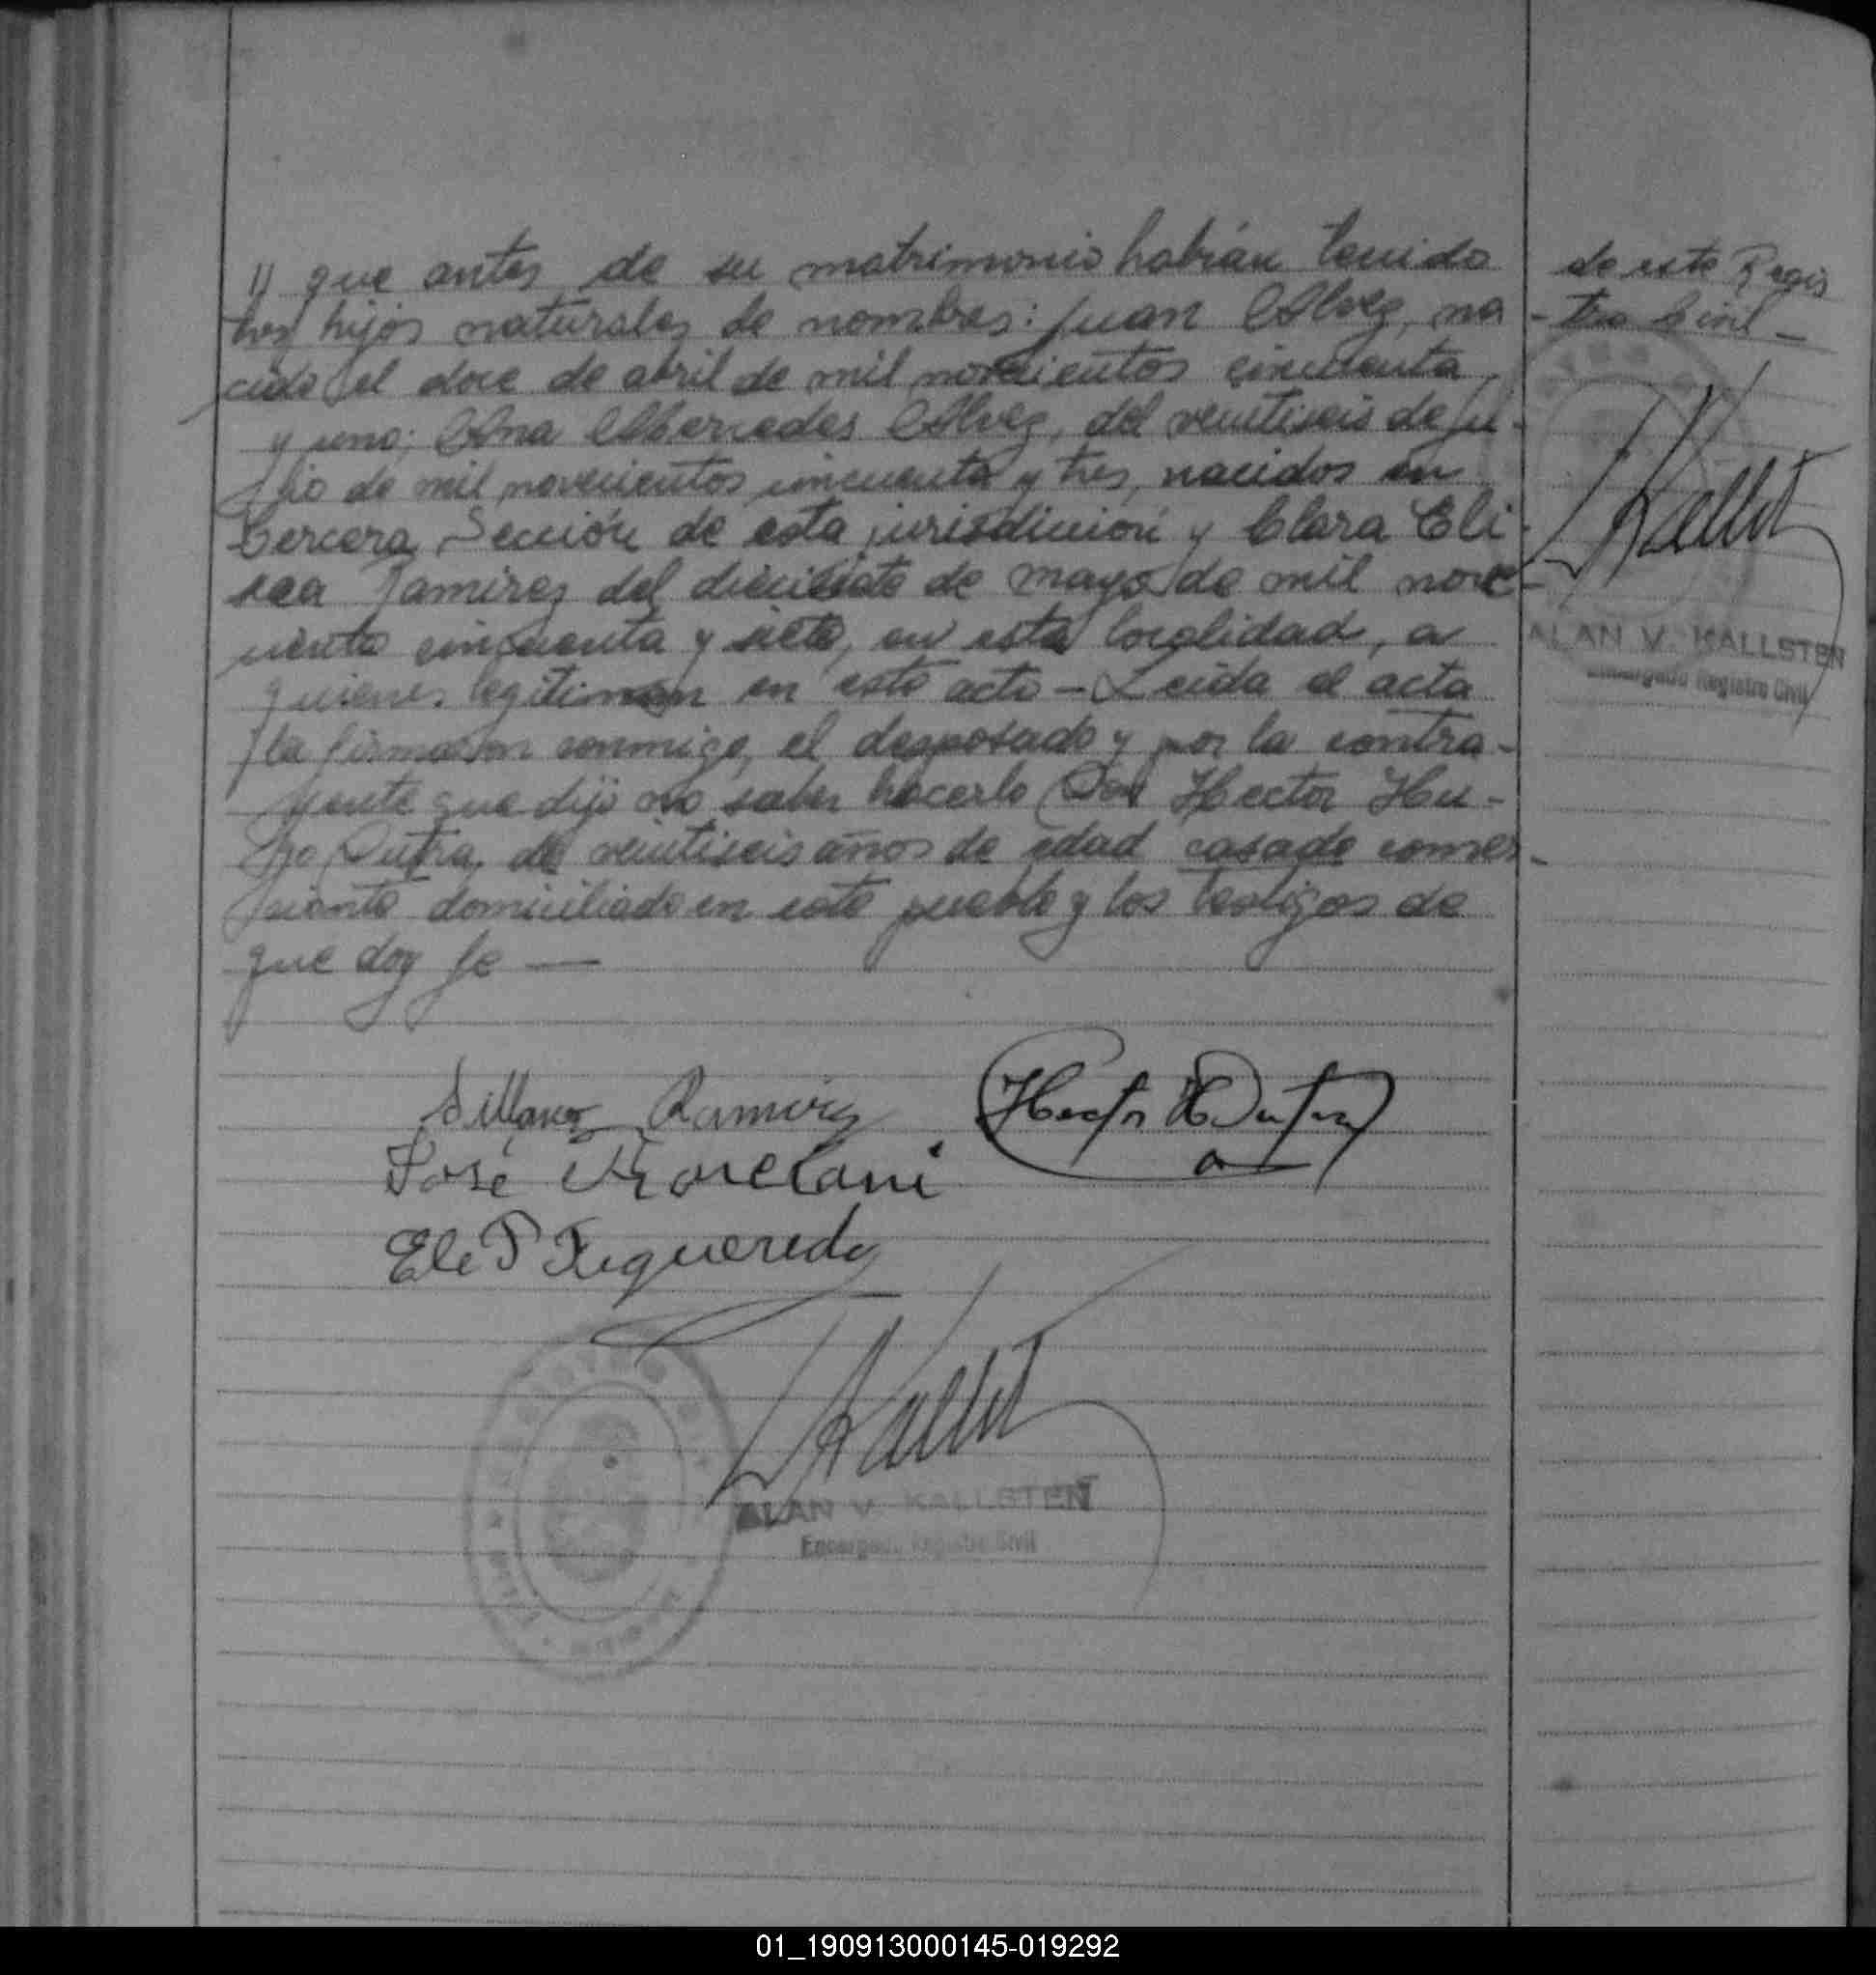 que antes de su matrimonio habían tenido
tres hijos naturales de nombres: Juan Alvez, na
cido el doce de abril de mil novecientos cincuenta
y uno; Ana Mercedes Alvez, del veintiseis de Ju-
lio de mil novecientos cincuenta y tres, nacidos en
tercera Sección de esta jurisdicción y Clara Eli-
sea Ramirez del diecisiete de mayo de mil nove-
ciento cincuenta y siete, en esta localidad, a
quienes legitiman en este acto - Leida el acta
la firmaron conmigo, el desposado y por la contra-
yente que dijo no saber hacerlo Don Hector Hu-
go Dutra, de veintiseis años de edad casado comer-
ciante domiciliado en este pueblo y los testigos de
que doy fe —
Ramirez
Hector H Dutra
José
Figueredo
ALAN V. KALLSTEN
Encargado Registro Civil
de este Regis
- tro Civil -
ALAN V. KALLSTEN
Encargado Registro Civil
01_190913000145-019292